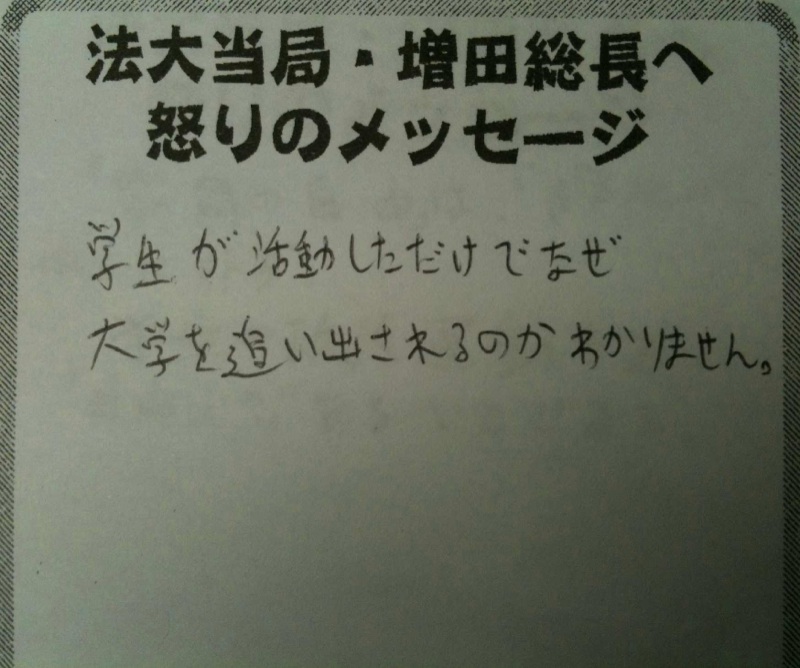 法大当局・増田総長へ
怒りのメッセージ
学生が活動しただけでなぜ
大学を追い出されるのかわかりません。